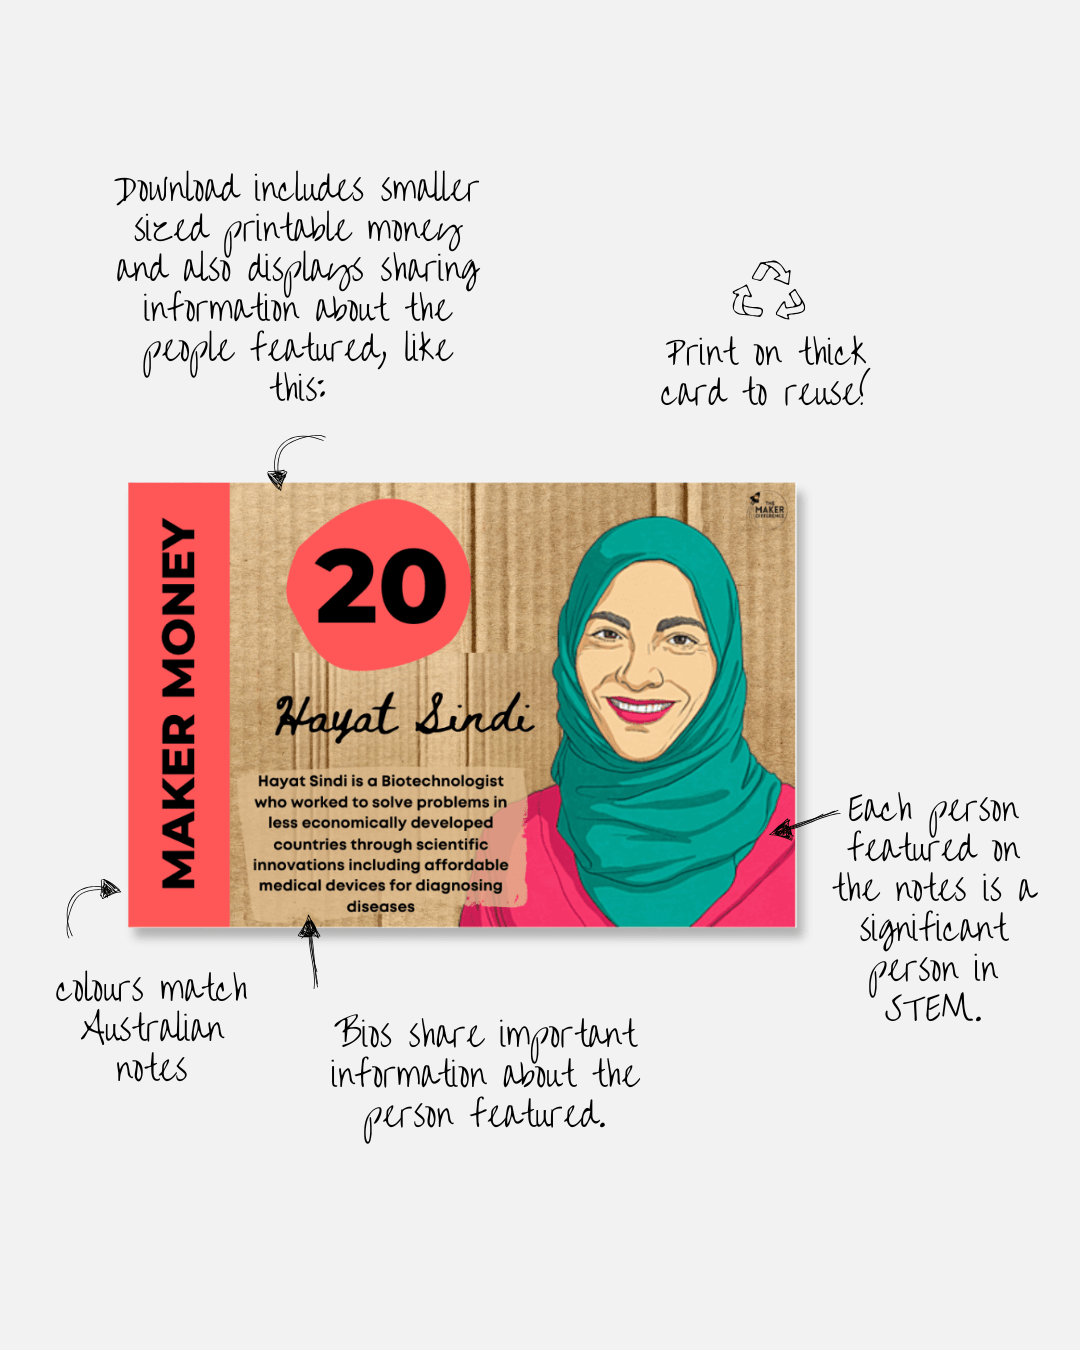 Download includes smaller
sized printable money
and also displays sharing
information about the
people featured, like
this:
Print on thick
card to reuse!
MAKER MONEY
20
THE
MAKER
DIFFERENCE
Hayat Sindi
Hayat Sindi is a Biotechnologist
who worked to solve problems in
less economically developed
countries through scientific
innovations including affordable
medical devices for diagnosing
diseases
Each person
featured on
the notes is a
significant
person in
STEM.
colours match
Australian
notes
Bios share important
information about the
person featured.